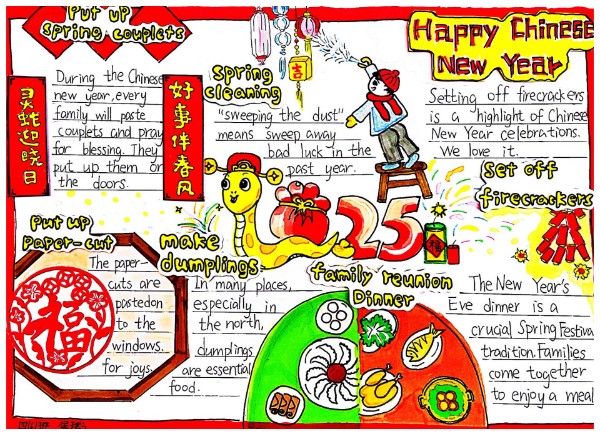 Put up
spring couplets
During the Chinese
new year, every
family will paste
couplets and pray
for blessing. They
put up them on
the doors.
灵蛇迎晓日
好事伴春风
spring
cleaning
"sweeping the dust"
means sweep away
bad luck in the
past year.
吉
Happy Chinese
New Year
Setting off firecrackers
is a highlight of Chinese
New Year celebrations.
We love it.
Set off
firecrackers
25
福
Put up
paper-cut
福
The paper-
cuts are
postedon
to the
windows.
for joys.
make
dumplings
In many places,
especially in
the north,
dumplings
are essential
food.
family reunion
Dinner
The New Year's
Eve dinner is a
crucial Spring Festival
tradition. Families
come together
to enjoy a meal